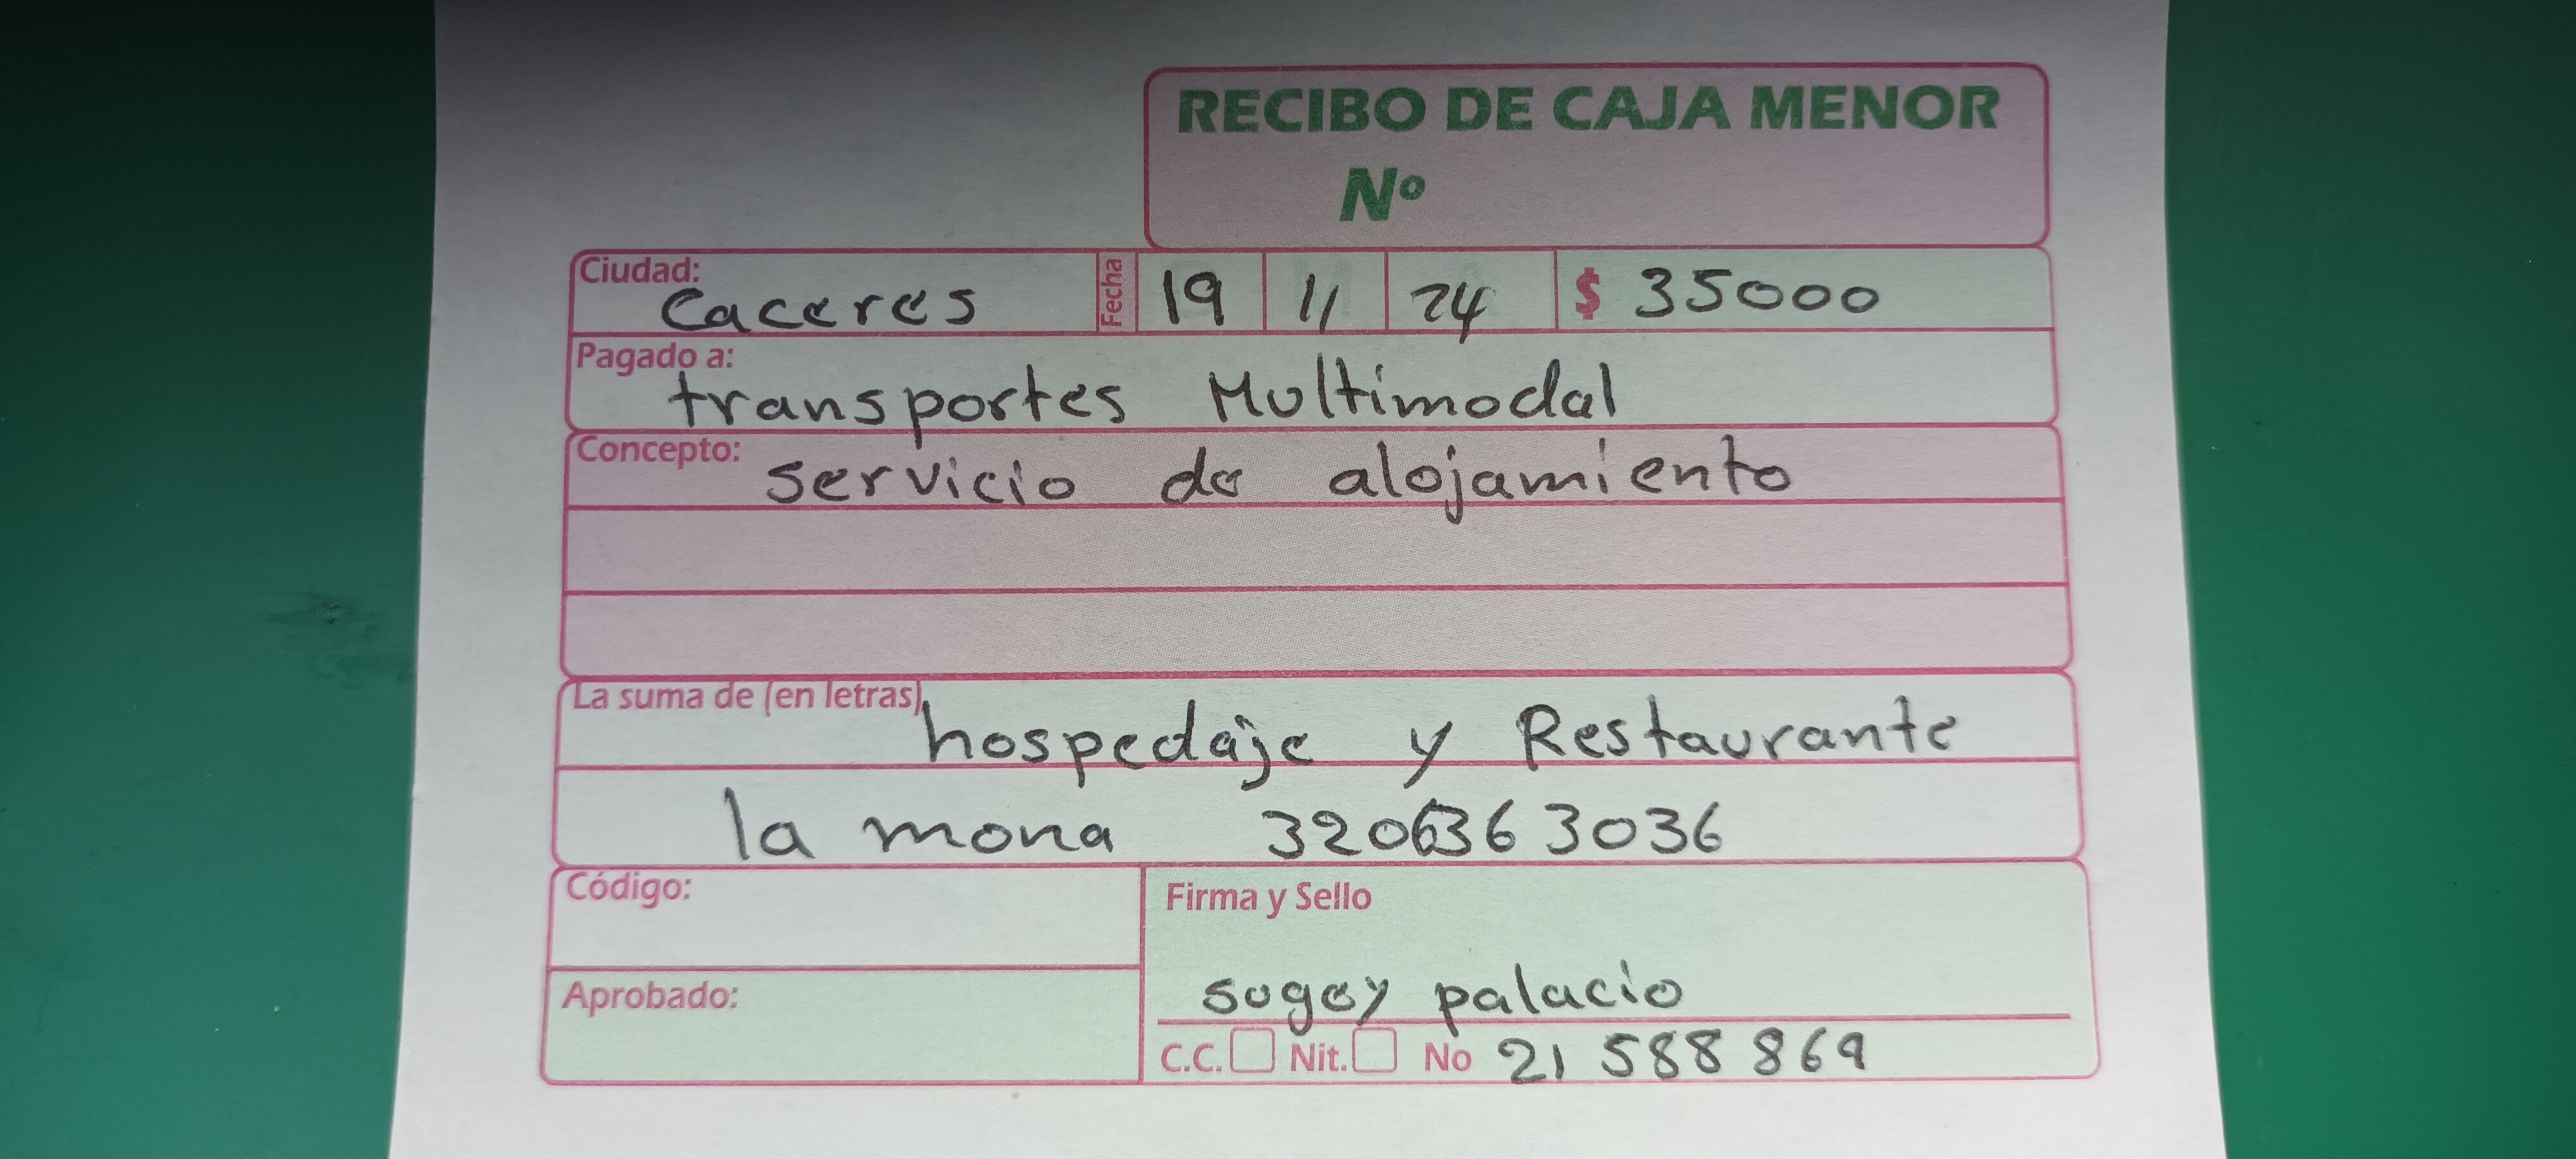 RECIBO DE CAJA MENOR
Nº
Ciudad: Caceres Fecha 19 11 24 $ 35000
Pagado a: transportes Multimodal
Concepto: servicio de alojamiento
La suma de (en letras) hospedaje y Restaurante
la mona 3206363036
Código:
Firma y Sello
Aprobado:
sugey palacio
C.C. Nit. No 21 588 869